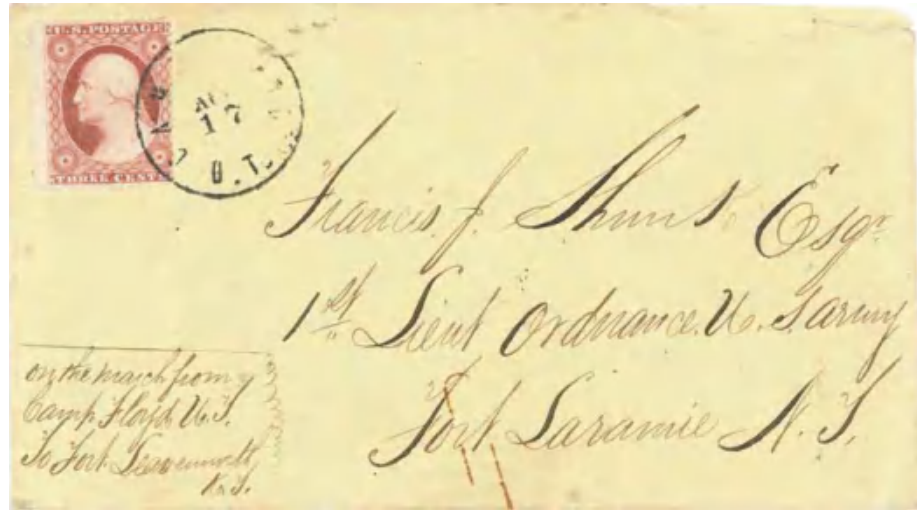 U.S. POSTAGE
THREE CENTS
17
U.T.
Francis. J. Shunk Esqr
1st Lieut Ordnance. U. S. army
Fort Laramie N. T.
on the march from
Camp Floyd U. T.
To Fort Leavenworth
K. T.